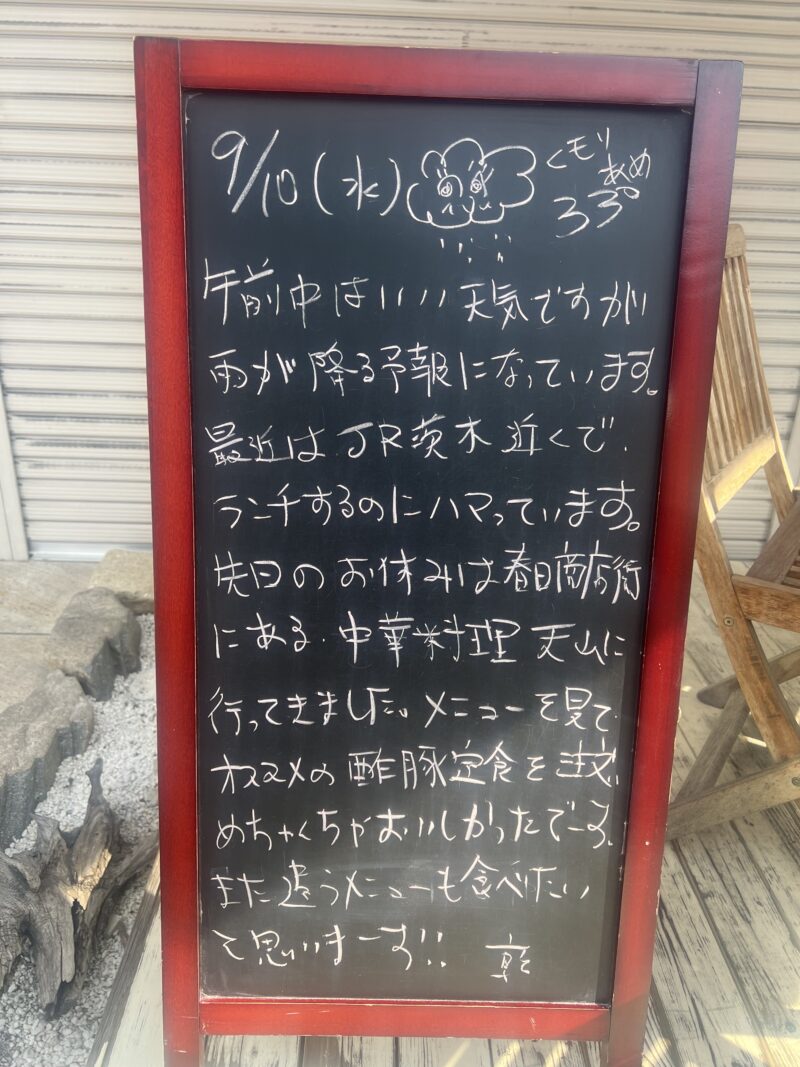 9/10(水) くモリ あめ 33°
午前中はいい天気ですが
雨が降る予報になっています。
最近はJR茨木近くで、
ランチするのにハマっています。
先日のお休みは春日商店街
にある、中華料理 天山に
行ってきました。メニューを見て、
オススメの酢豚定食を注文、
めちゃくちゃおいしかったでーす。
また違うメニューも食べたい
と思いまーす!! 乾